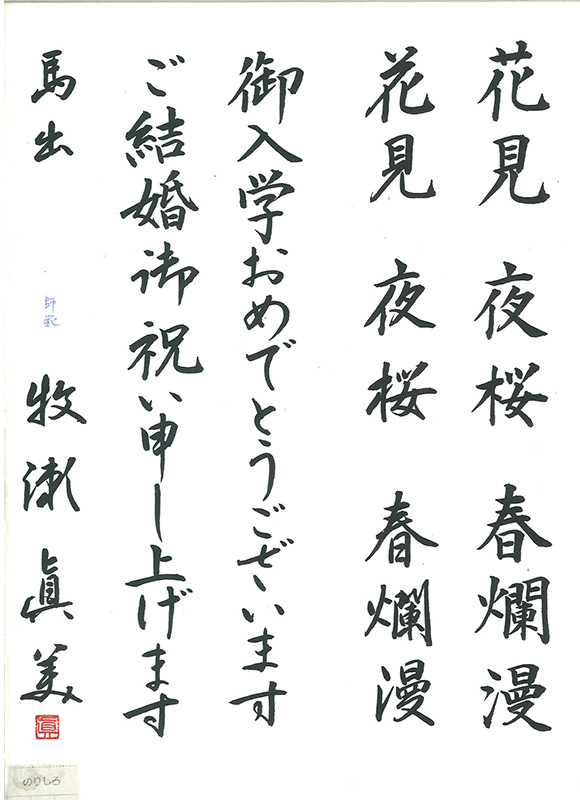 花見 夜桜 春爛漫
花見 夜桜 春爛漫
御入学おめでとうございます
ご結婚御祝い申し上げます
馬出 師範 牧瀬 眞美
眞
のりしろ